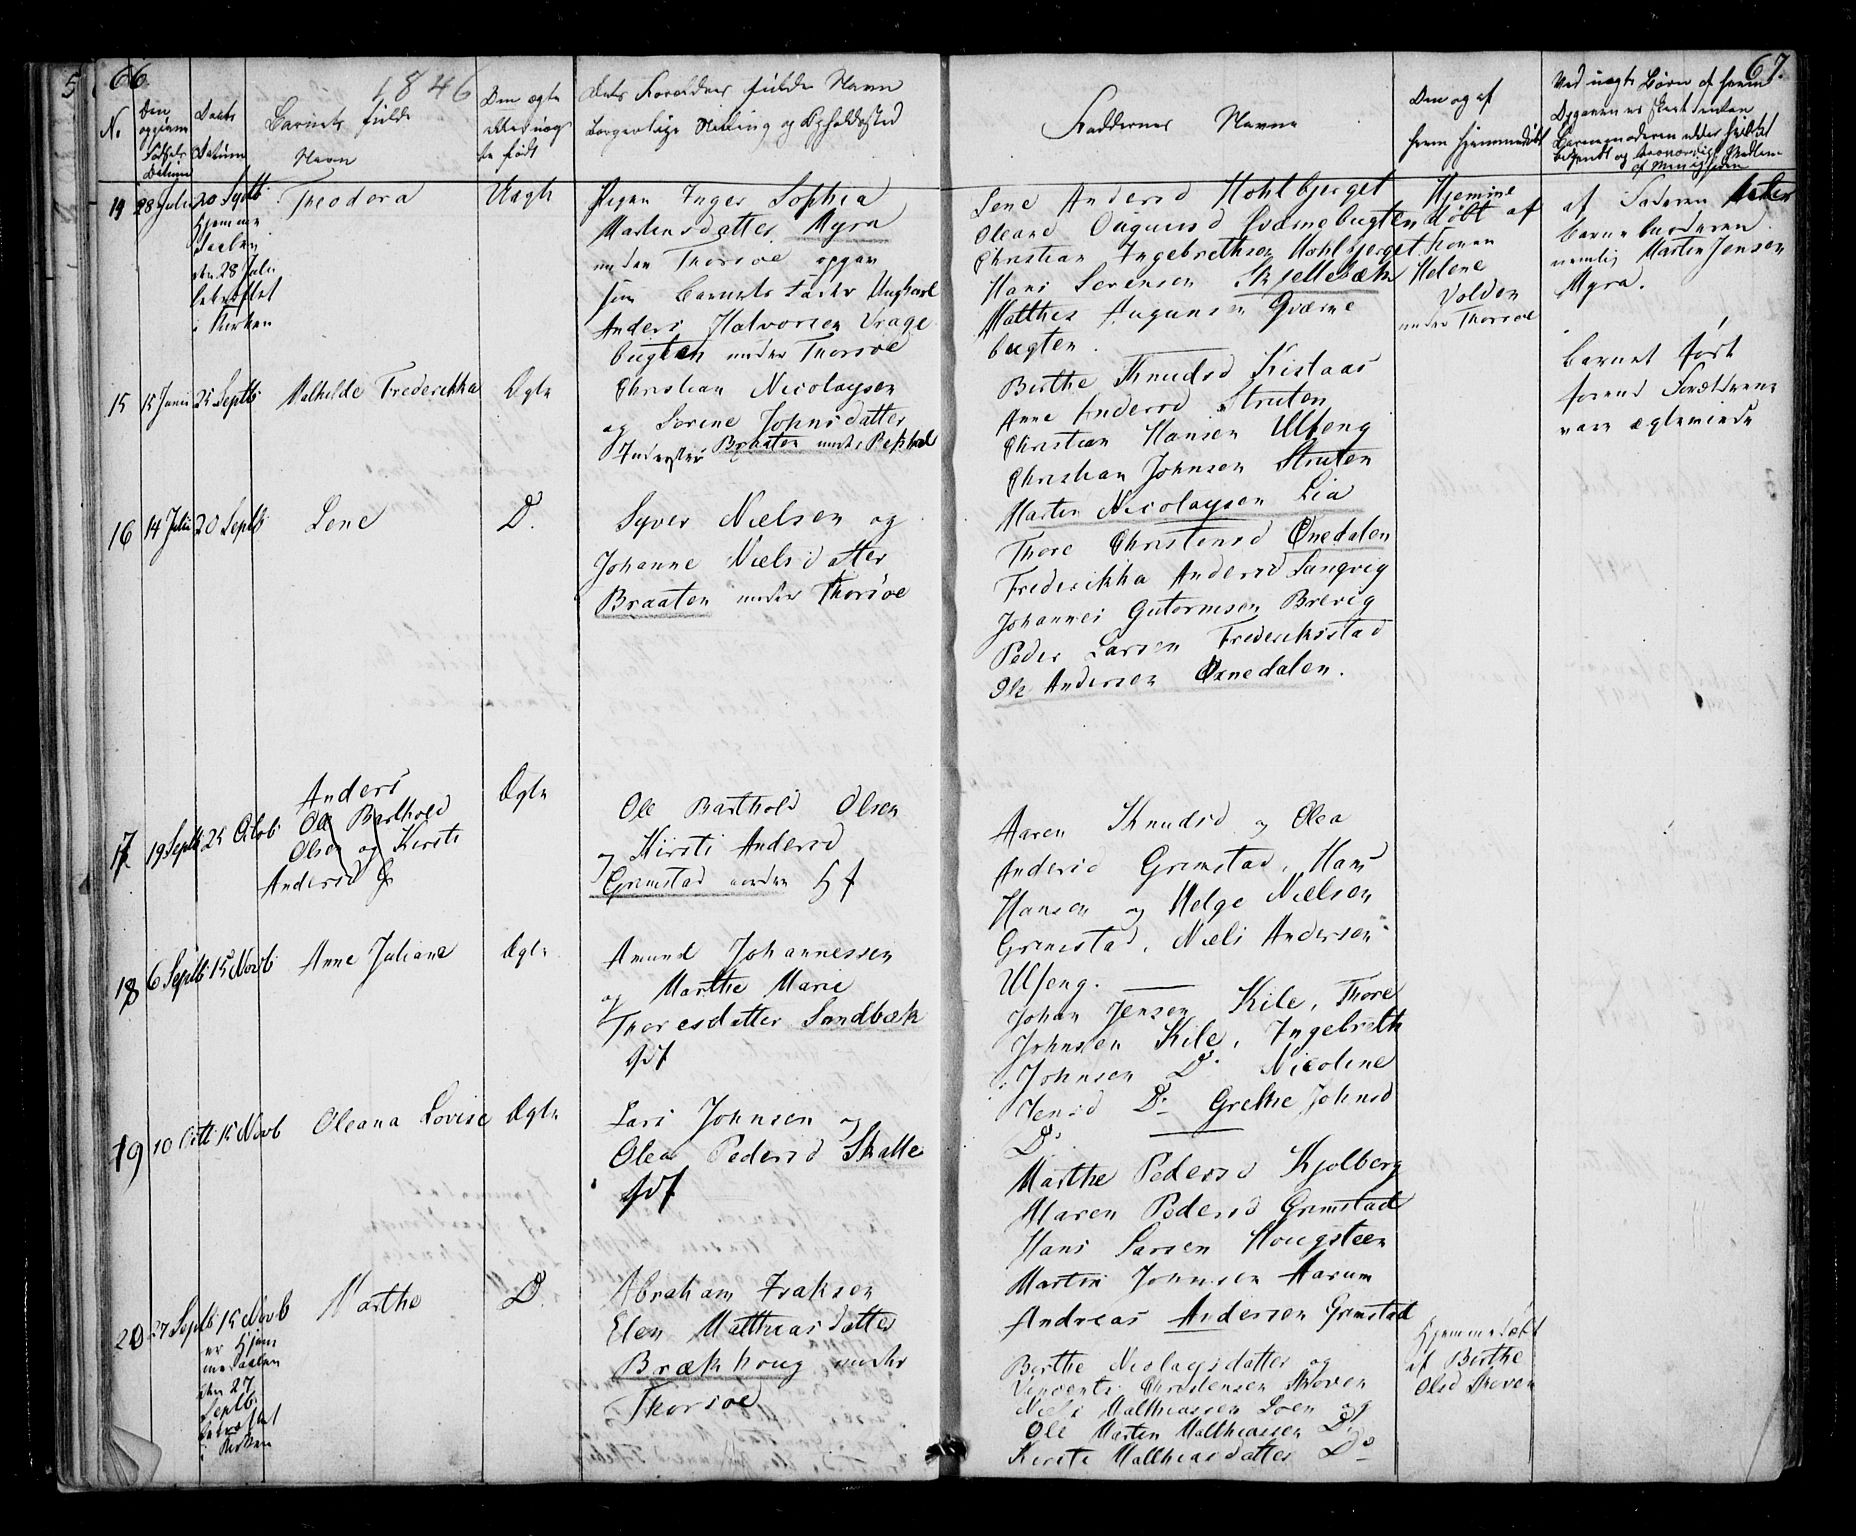 5 66 1846 67.
No. Den opgivne Fødsels Datum
Daabs Datum
Barnets fulde Navn
Om ægte eller uægte født
Dets Forældres fulde Navn
borgerlige Stilling og Opholdssted
Faddernes Navne
Om og af
hvem hjemmedøbt
Ved uægte Børn af hvem
Opgaven er skeet
Barnemoderen eller hvilket
bekjendt og troværdigt Medlem
af Menigheden
14 28 Juli 20 Septb
Hjemme
den 28 Juli
bekræftet
i Kirken
Theodora
Uægte
Pigen Inger Sophia
Martinsdatter Myra
under Thorsøe opgav
som Barnets Fader Ungkarl
Anders Halvorsen
bugten under Thorsøe
Lene Andersd Hohlbjerget
Oleane
Christian Ingebrethsen Hohlbjerget
Hans Sørensen Skjellebæk
Mathes
bugten.
Hjemme
døbt af
Konen
Helene
Volden
under Thorsøe
af Faderen
barnemoderen
nemlig Martin Jensen
Myra.
15 15 Juni 25 Septb
Mathilde Frederikka
Ægte
Christian Nicolaysen
og Sørine Johnsdatter
Inderster Braaten under
Berthe Knudsd Kistaas
Anne Andersd Struten
Christian Hansen Ulfeng
Christian Johnsen Struten
Martin Nicolaysen Lia
Barnet født
forend Forældrene
vare ægteviede
16 14 Juli 20 Septb
Lene
D.
Syver Nielsen og
Johanne Nielsdatter
Braaten under Thorsøe
Thore Christensd Oxnedalen
Frederikka Andersd Sungvig
Johannes Gutormsen Brevig
Peder Larsen Frederikstad
Ole Andersen Oxnedalen.
17 19 Septb 25 Octob
Anders
Ole Barthold
Olsen og Kirsti
Andersd G
Ægte
Ole Barthold Olsen
og Kirsti Andersd
Grimstad
Maren Knudsd og Olea
Andersd Grimstad, Hans
Hansen og Helge Nielsen
Grimstad, Niels Andersen
Ulfeng.
18 6 Septb 15 Novb
Anne Juliane
Ægte
Amund Johannessen
og Marthe Marie
Thoresdatter Sandbæk
Johan Jensen Kile, Thore
Johnsen Kile, Ingebreth
Johnsen Do Nicoline
Jensd Do Grethe Johnsd
Do
19 10 Octb 15 Novb
Oleana Lovise
Ægte
Lars Johnsen og
Olea Pedersd Skatte
Marthe Pedersd Kjølberg
Maren Pedersd Grimstad
Hans Larsen Hougsteen
Martin Johnsen Aarum
Andreas Andersen Grimstad
20 27 Septb 15 Novb
er Hjem
medaaben
den 27
Septb
bekræftet
i Kirken
Marthe
D.
Abraham Isaksen
Elen Matthiasdatter
Brækhoug under
Thorsøe
Berthe Niclaysdatter og
Vincents Christensen Skoven
Niels Matthiassen Loen og
Ole Martin Matthiassen Do
Kirsti Matthiasdatter Do
Hjemmedøbt
af Berthe
Olsd Skoven